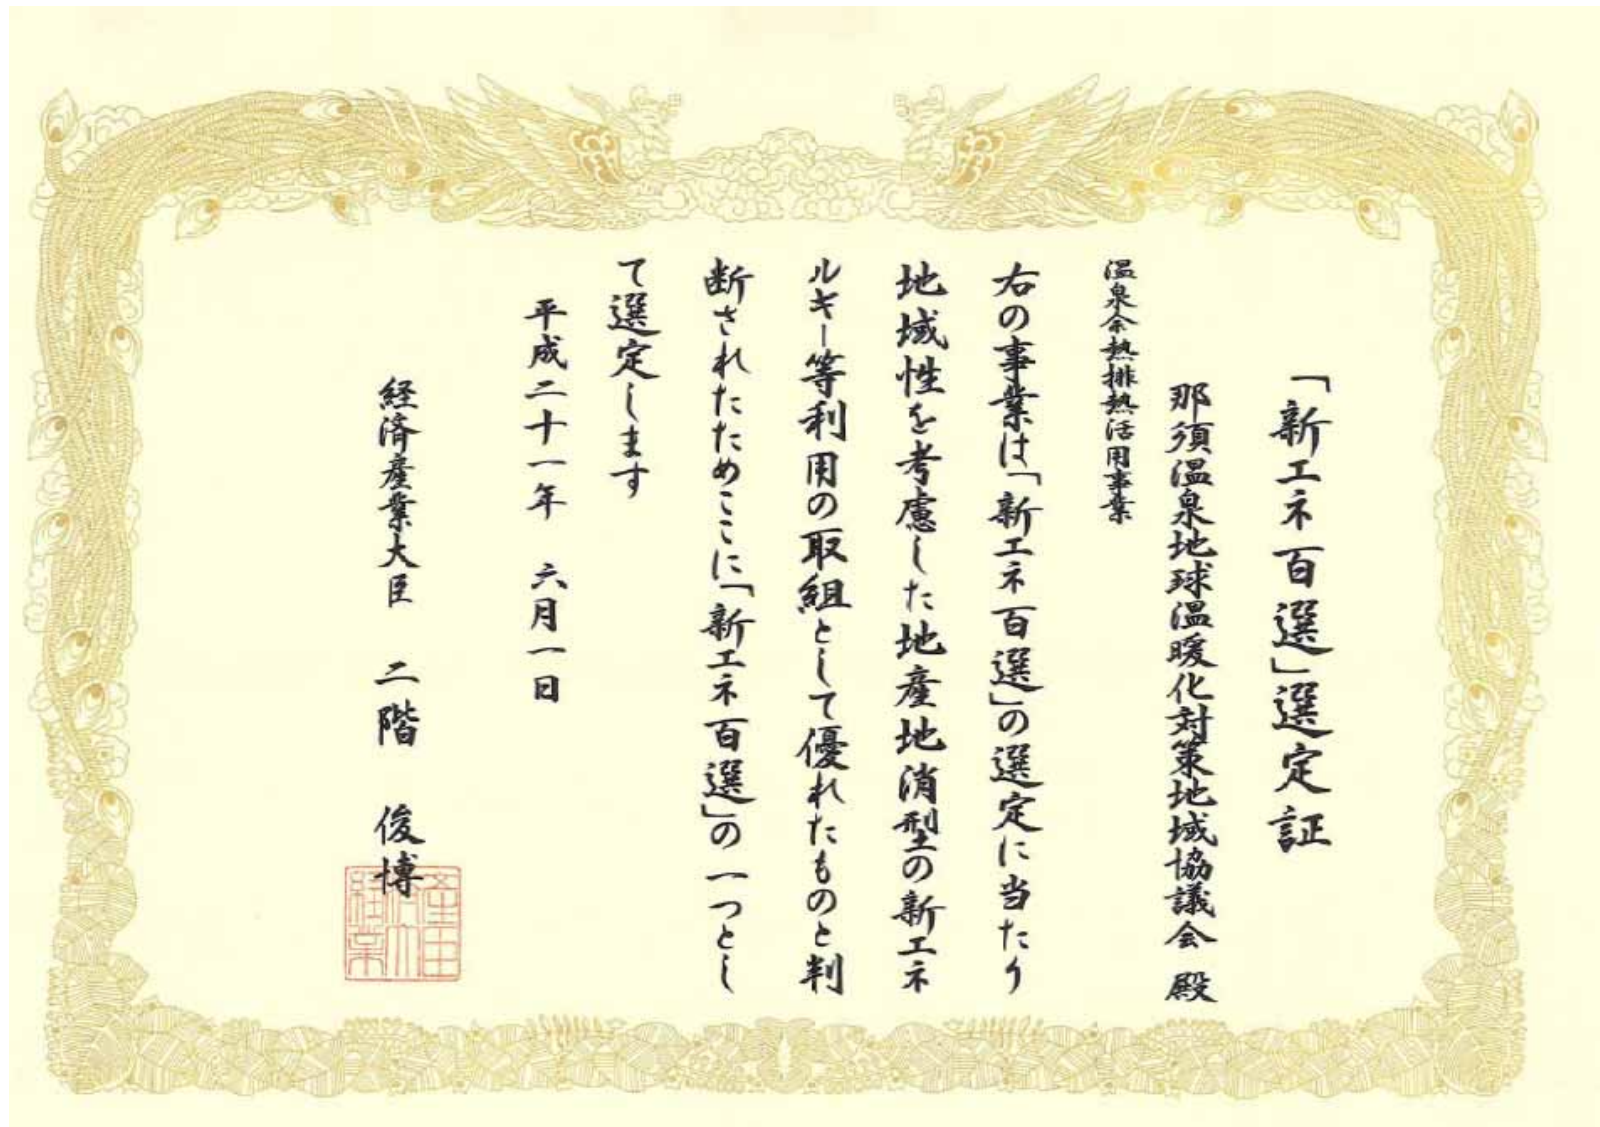 「新エネ百選」選定証
那須温泉地球温暖化対策地域協議会 殿
温泉余熱排熱活用事業
右の事業は「新エネ百選」の選定に当たり
地域性を考慮した地産地消型の新エネ
ルギー等利用の取組として優れたものと判
断されたためここに「新エネ百選」の一つとし
て選定します
平成二十一年 六月一日
経済産業大臣 二階 俊博